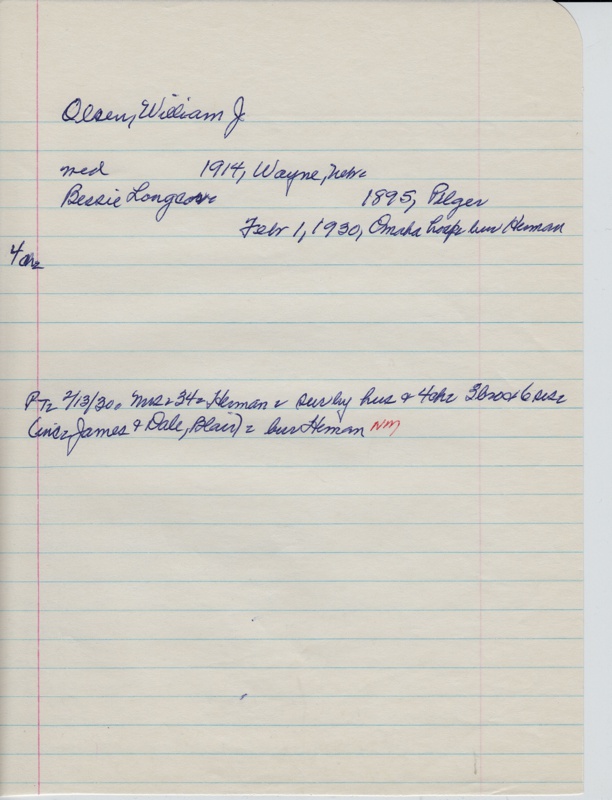 Olsen, William J.
med 1914, Wayne, Nebr
Bessie Longcor 1895, Pilger
Febr 1, 1930, Omaha hosp bur Herman
4 ch
PT 2/13/30. Mrs 34 Herman surv by hus & 4 ch 3 bros & 6 sis
(inc James & Dale, Blair) bur Herman NM